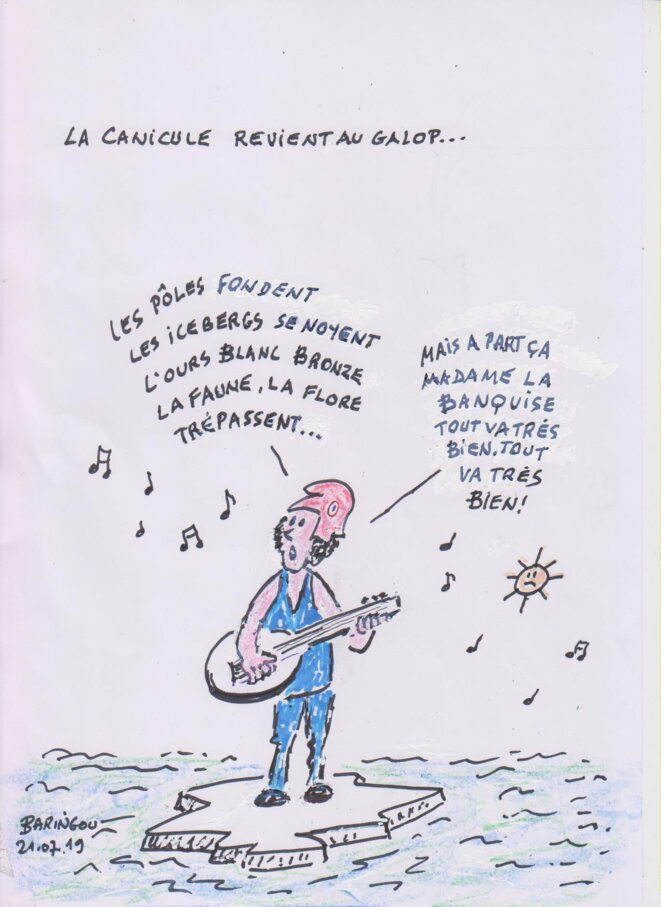 LA CANICULE REVIENT AU GALOP...
LES PÔLES FONDENT
LES ICEBERGS SE NOYENT
L'OURS BLANC BRONZE
LA FAUNE, LA FLORE
TRÉPASSENT...
MAIS A PART ÇA
MADAME LA
BANQUISE
TOUT VA TRÉS
BIEN, TOUT
VA TRÉS
BIEN!
BARINGOU
21.07.19